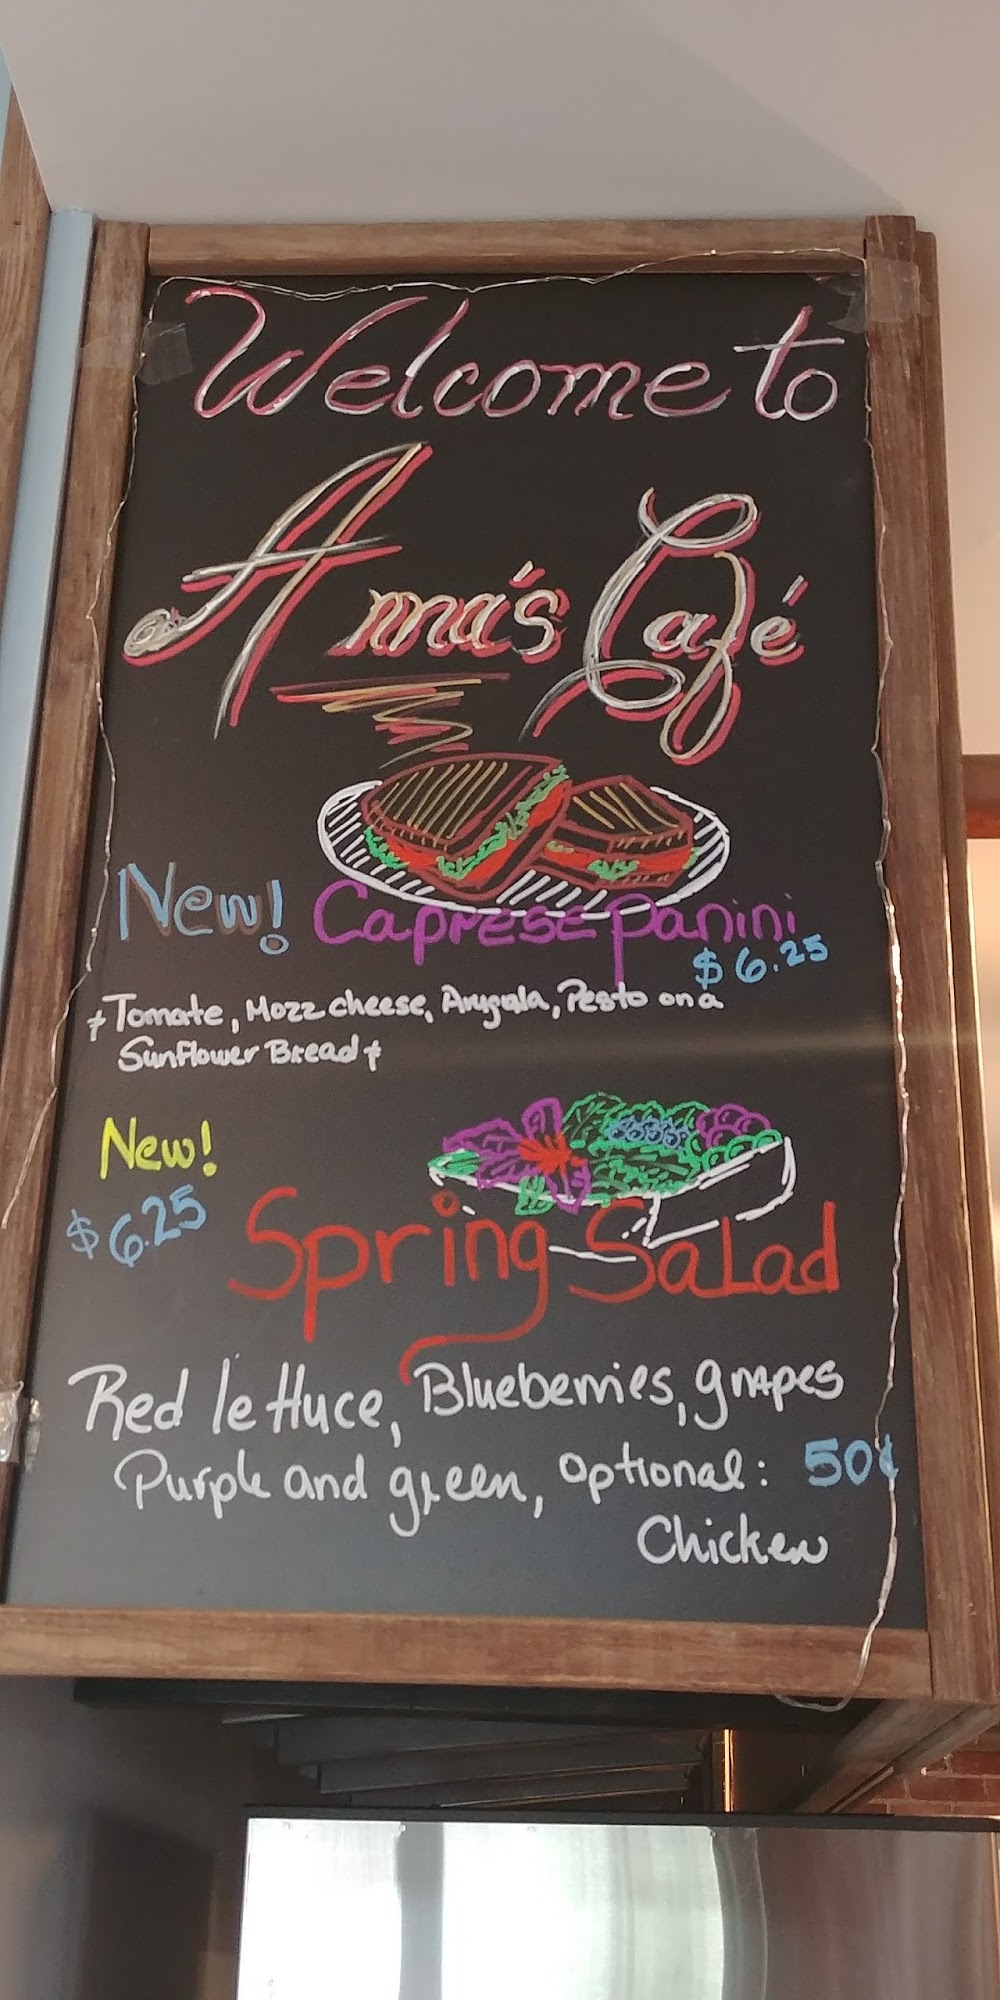 Welcome to
Anna's Café
New! Caprese Panini
$6.25
Tomate, Mozz cheese, Arugula, Pesto on a
Sunflower Bread
New!
$6.25
Spring Salad
Red lettuce, Blueberries, grapes
Purple and green, Optional: 50¢
Chicken